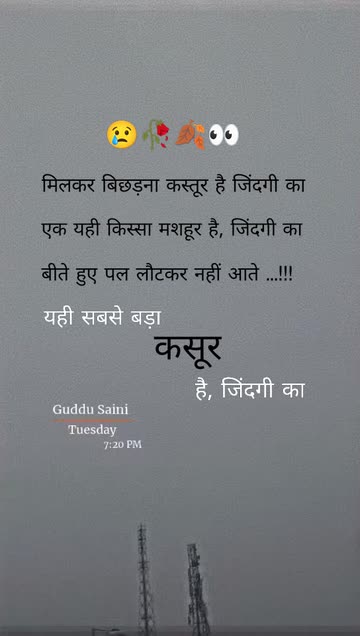 😢🥀🍂👀
मिलकर बिछड़ना कस्तूर है जिंदगी का
एक यही किस्सा मशहूर है, जिंदगी का
बीते हुए पल लौटकर नहीं आते ...!!!
यही सबसे बड़ा
कसूर
है, जिंदगी का
Guddu Saini
Tuesday
7:20 PM